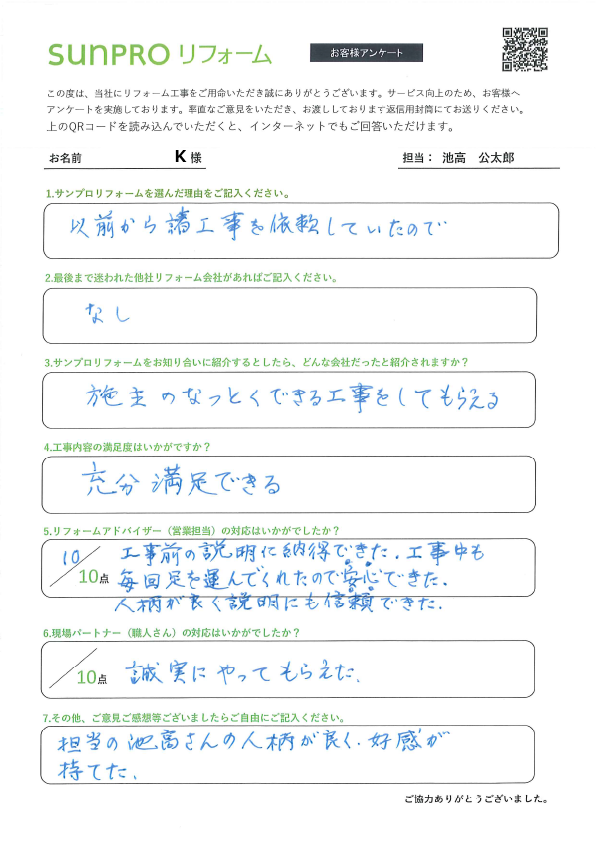 sunpro リフォーム
お客様アンケート
この度は、当社にリフォーム工事をご用命いただき誠にありがとうございます。サービス向上のため、お客様へ
アンケートを実施しております。率直なご意見をいただき、お渡ししております返信用封筒にてお送りください。
上のQRコードを読み込んでいただくと、インターネットでもご回答いただけます。
お名前 K 様
担当： 池高 公太郎
1.サンプロリフォームを選んだ理由をご記入ください。
以前から諸工事を依頼していたので
2.最後まで迷われた他社リフォーム会社があればご記入ください。
なし
3.サンプロリフォームをお知り合いに紹介するとしたら、どんな会社だったと紹介されますか？
施主のなっとくできる工事をしてもらえる
4.工事内容の満足度はいかがですか？
充分満足できる
5.リフォームアドバイザー（営業担当）の対応はいかがでしたか？
10/10点
工事前の説明に納得できた．工事中も
毎回足を運んでくれたので安心できた．
人柄が良く説明にも信頼できた．
6.現場パートナー（職人さん）の対応はいかがでしたか？
/10点 誠実にやってもらえた．
7.その他、ご意見ご感想等ございましたらご自由にご記入ください。
担当の池高さんの人柄が良く．好感が
持てた．
ご協力ありがとうございました。